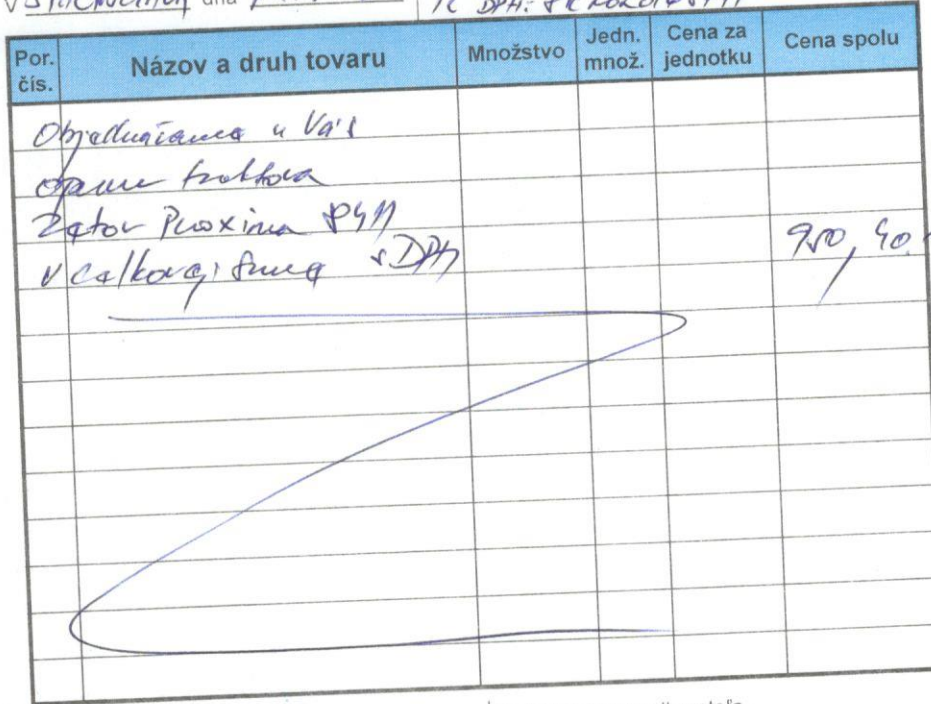 dňa
IČ DPH: SK
Por. čís. Názov a druh tovaru Množstvo Jedn. množ. Cena za jednotku Cena spolu
Objednávame u Vás
opravu traktora
Zetor Proxima 8441
v celkovej sume s DPH 950,40